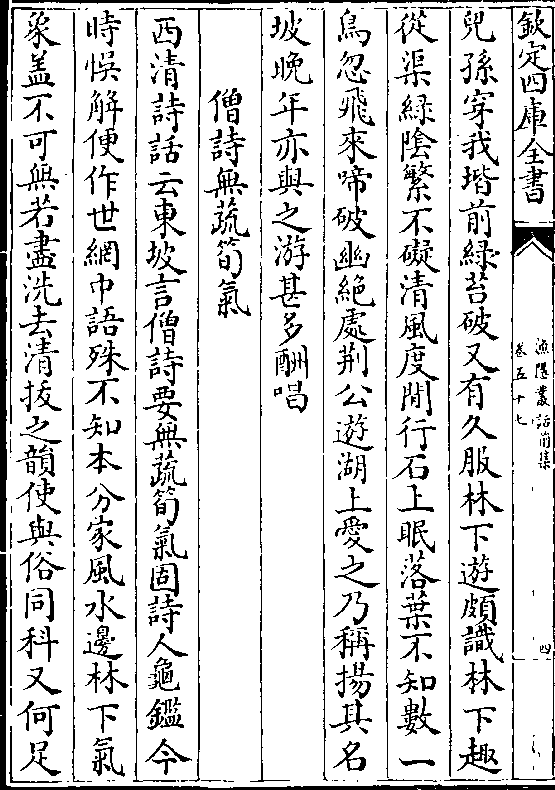 欽定四庫全書
漁隱叢話前集
卷五十七
四
兒孫穿我堦前綠苔破又有久服林下遊頗識林下趣
從渠綠陰繁不礙清風度閒行石上眠落葉不知數一
鳥忽飛來啼破幽絕處荆公遊湖上愛之乃稱揚其名
坡晚年亦與之游甚多酬唱
僧詩無蔬筍氣
西清詩話云東坡言僧詩要無蔬筍氣固詩人龜鑑今
時悞解便作世網中語殊不知本分家風水邊林下氣
象盖不可無若盡洗去清拔之韻使與俗同科又何足